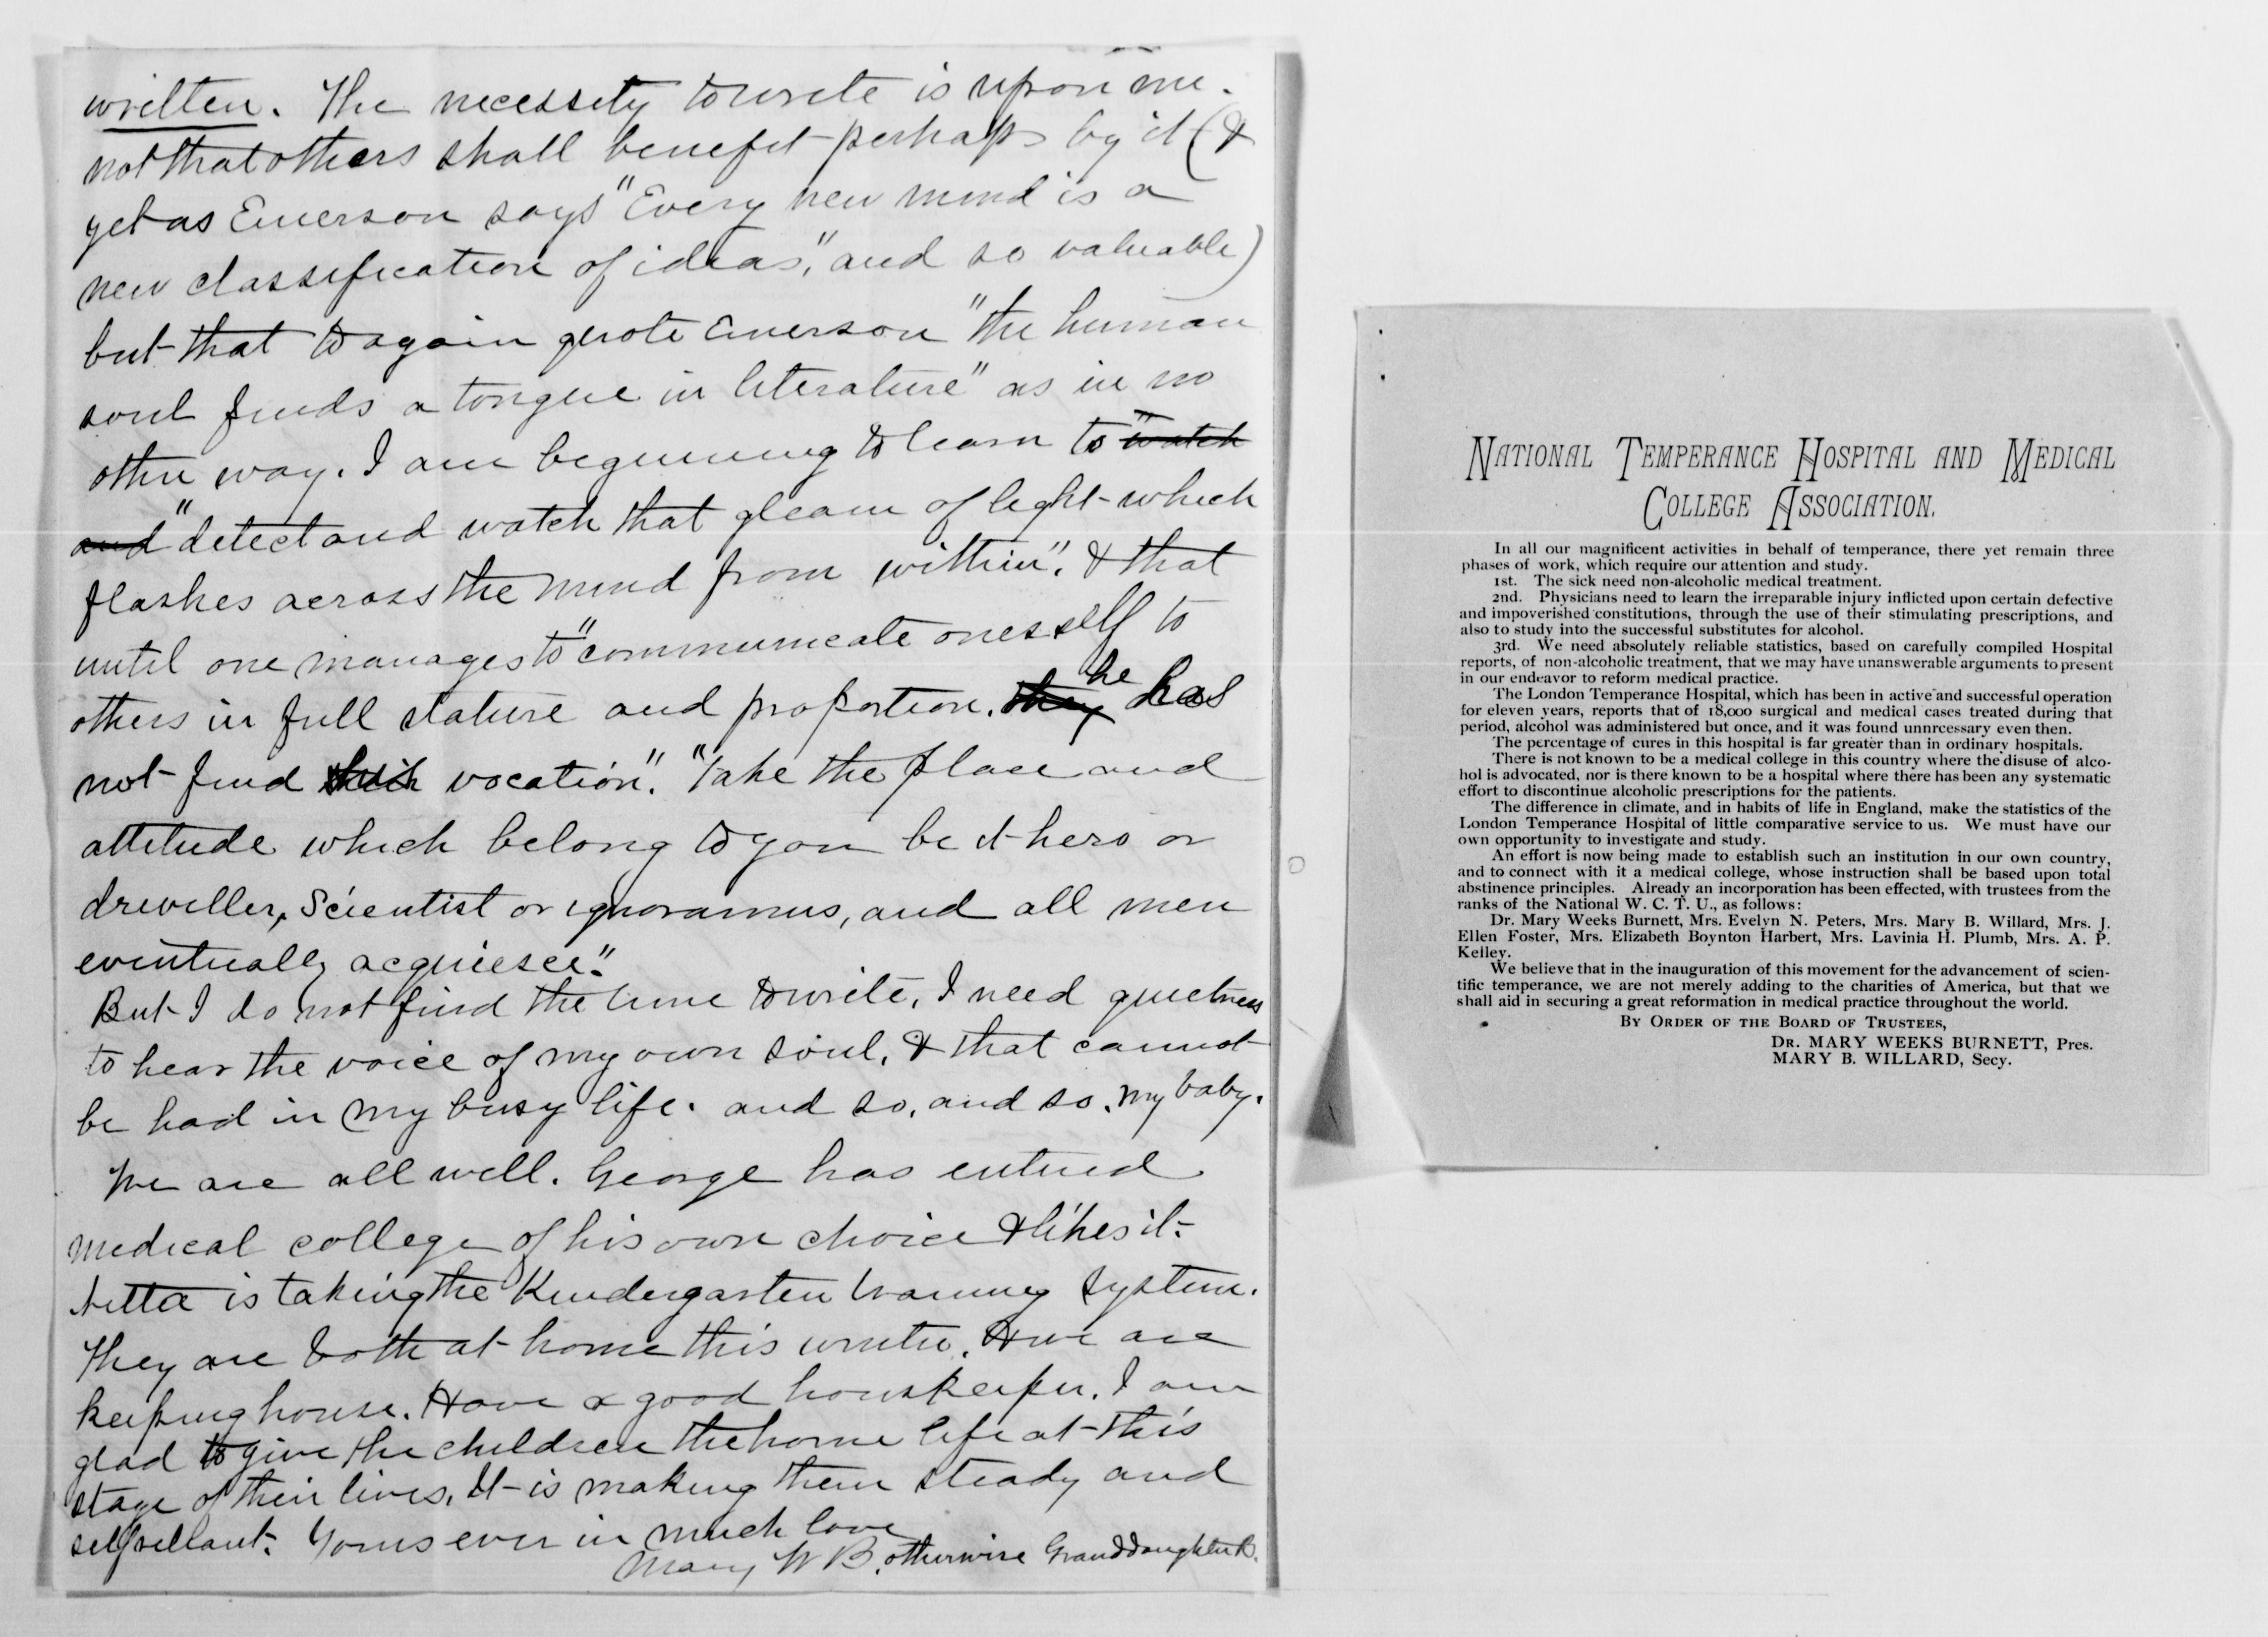 written. The necessity to write is upon me.
not that others shall benefit perhaps by it (&
yet as Emerson says "Every new mind is a
new classification of ideas", and so valuable)
but that to again quote Emerson "the human
soul finds a tongue in literature" as in no
other way. I am beginning to learn to "watch
and "detect and watch that gleam of light which
flashes across the mind from within". & that
until one manages to "communicate onesself to
others in full stature and proportion. they he has
not find their vocation". "Take the place and
attitude which belong to you be it hero or
driveller, Scientist or ignoramus, and all men
eventually acquiesce".
But I do not find the time to write, I need quietness
to hear the voice of my own soul, & that cannot
be had in my busy life. and so, and so, my baby.
We are all well. George has entered
medical college of his own choice & likes it.
Netta is taking the Kindergarten training system.
They are both at home this winter, & we are
keeping house. Have a good houskeeper. I am
glad to give the children the home life at this
stage of their lives. It is making them steady and
selfreliant. Yours ever in much love
Mary W B. otherwise Granddaughter B.
NATIONAL TEMPERANCE HOSPITAL AND MEDICAL
COLLEGE ASSOCIATION.
In all our magnificent activities in behalf of temperance, there yet remain three
phases of work, which require our attention and study.
1st. The sick need non-alcoholic medical treatment.
2nd. Physicians need to learn the irreparable injury inflicted upon certain defective
and impoverished constitutions, through the use of their stimulating prescriptions, and
also to study into the successful substitutes for alcohol.
3rd. We need absolutely reliable statistics, based on carefully compiled Hospital
reports, of non-alcoholic treatment, that we may have unanswerable arguments to present
in our endeavor to reform medical practice.
The London Temperance Hospital, which has been in active and successful operation
for eleven years, reports that of 18,000 surgical and medical cases treated during that
period, alcohol was administered but once, and it was found unnrcessary even then.
The percentage of cures in this hospital is far greater than in ordinary hospitals.
There is not known to be a medical college in this country where the disuse of alco-
hol is advocated, nor is there known to be a hospital where there has been any systematic
effort to discontinue alcoholic prescriptions for the patients.
The difference in climate, and in habits of life in England, make the statistics of the
London Temperance Hospital of little comparative service to us. We must have our
own opportunity to investigate and study.
An effort is now being made to establish such an institution in our own country,
and to connect with it a medical college, whose instruction shall be based upon total
abstinence principles. Already an incorporation has been effected, with trustees from the
ranks of the National W. C. T. U., as follows:
Dr. Mary Weeks Burnett, Mrs. Evelyn N. Peters, Mrs. Mary B. Willard, Mrs. J.
Ellen Foster, Mrs. Elizabeth Boynton Harbert, Mrs. Lavinia H. Plumb, Mrs. A. P.
Kelley.
We believe that in the inauguration of this movement for the advancement of scien-
tific temperance, we are not merely adding to the charities of America, but that we
shall aid in securing a great reformation in medical practice throughout the world.
BY ORDER OF THE BOARD OF TRUSTEES,
DR. MARY WEEKS BURNETT, Pres.
MARY B. WILLARD, Secy.